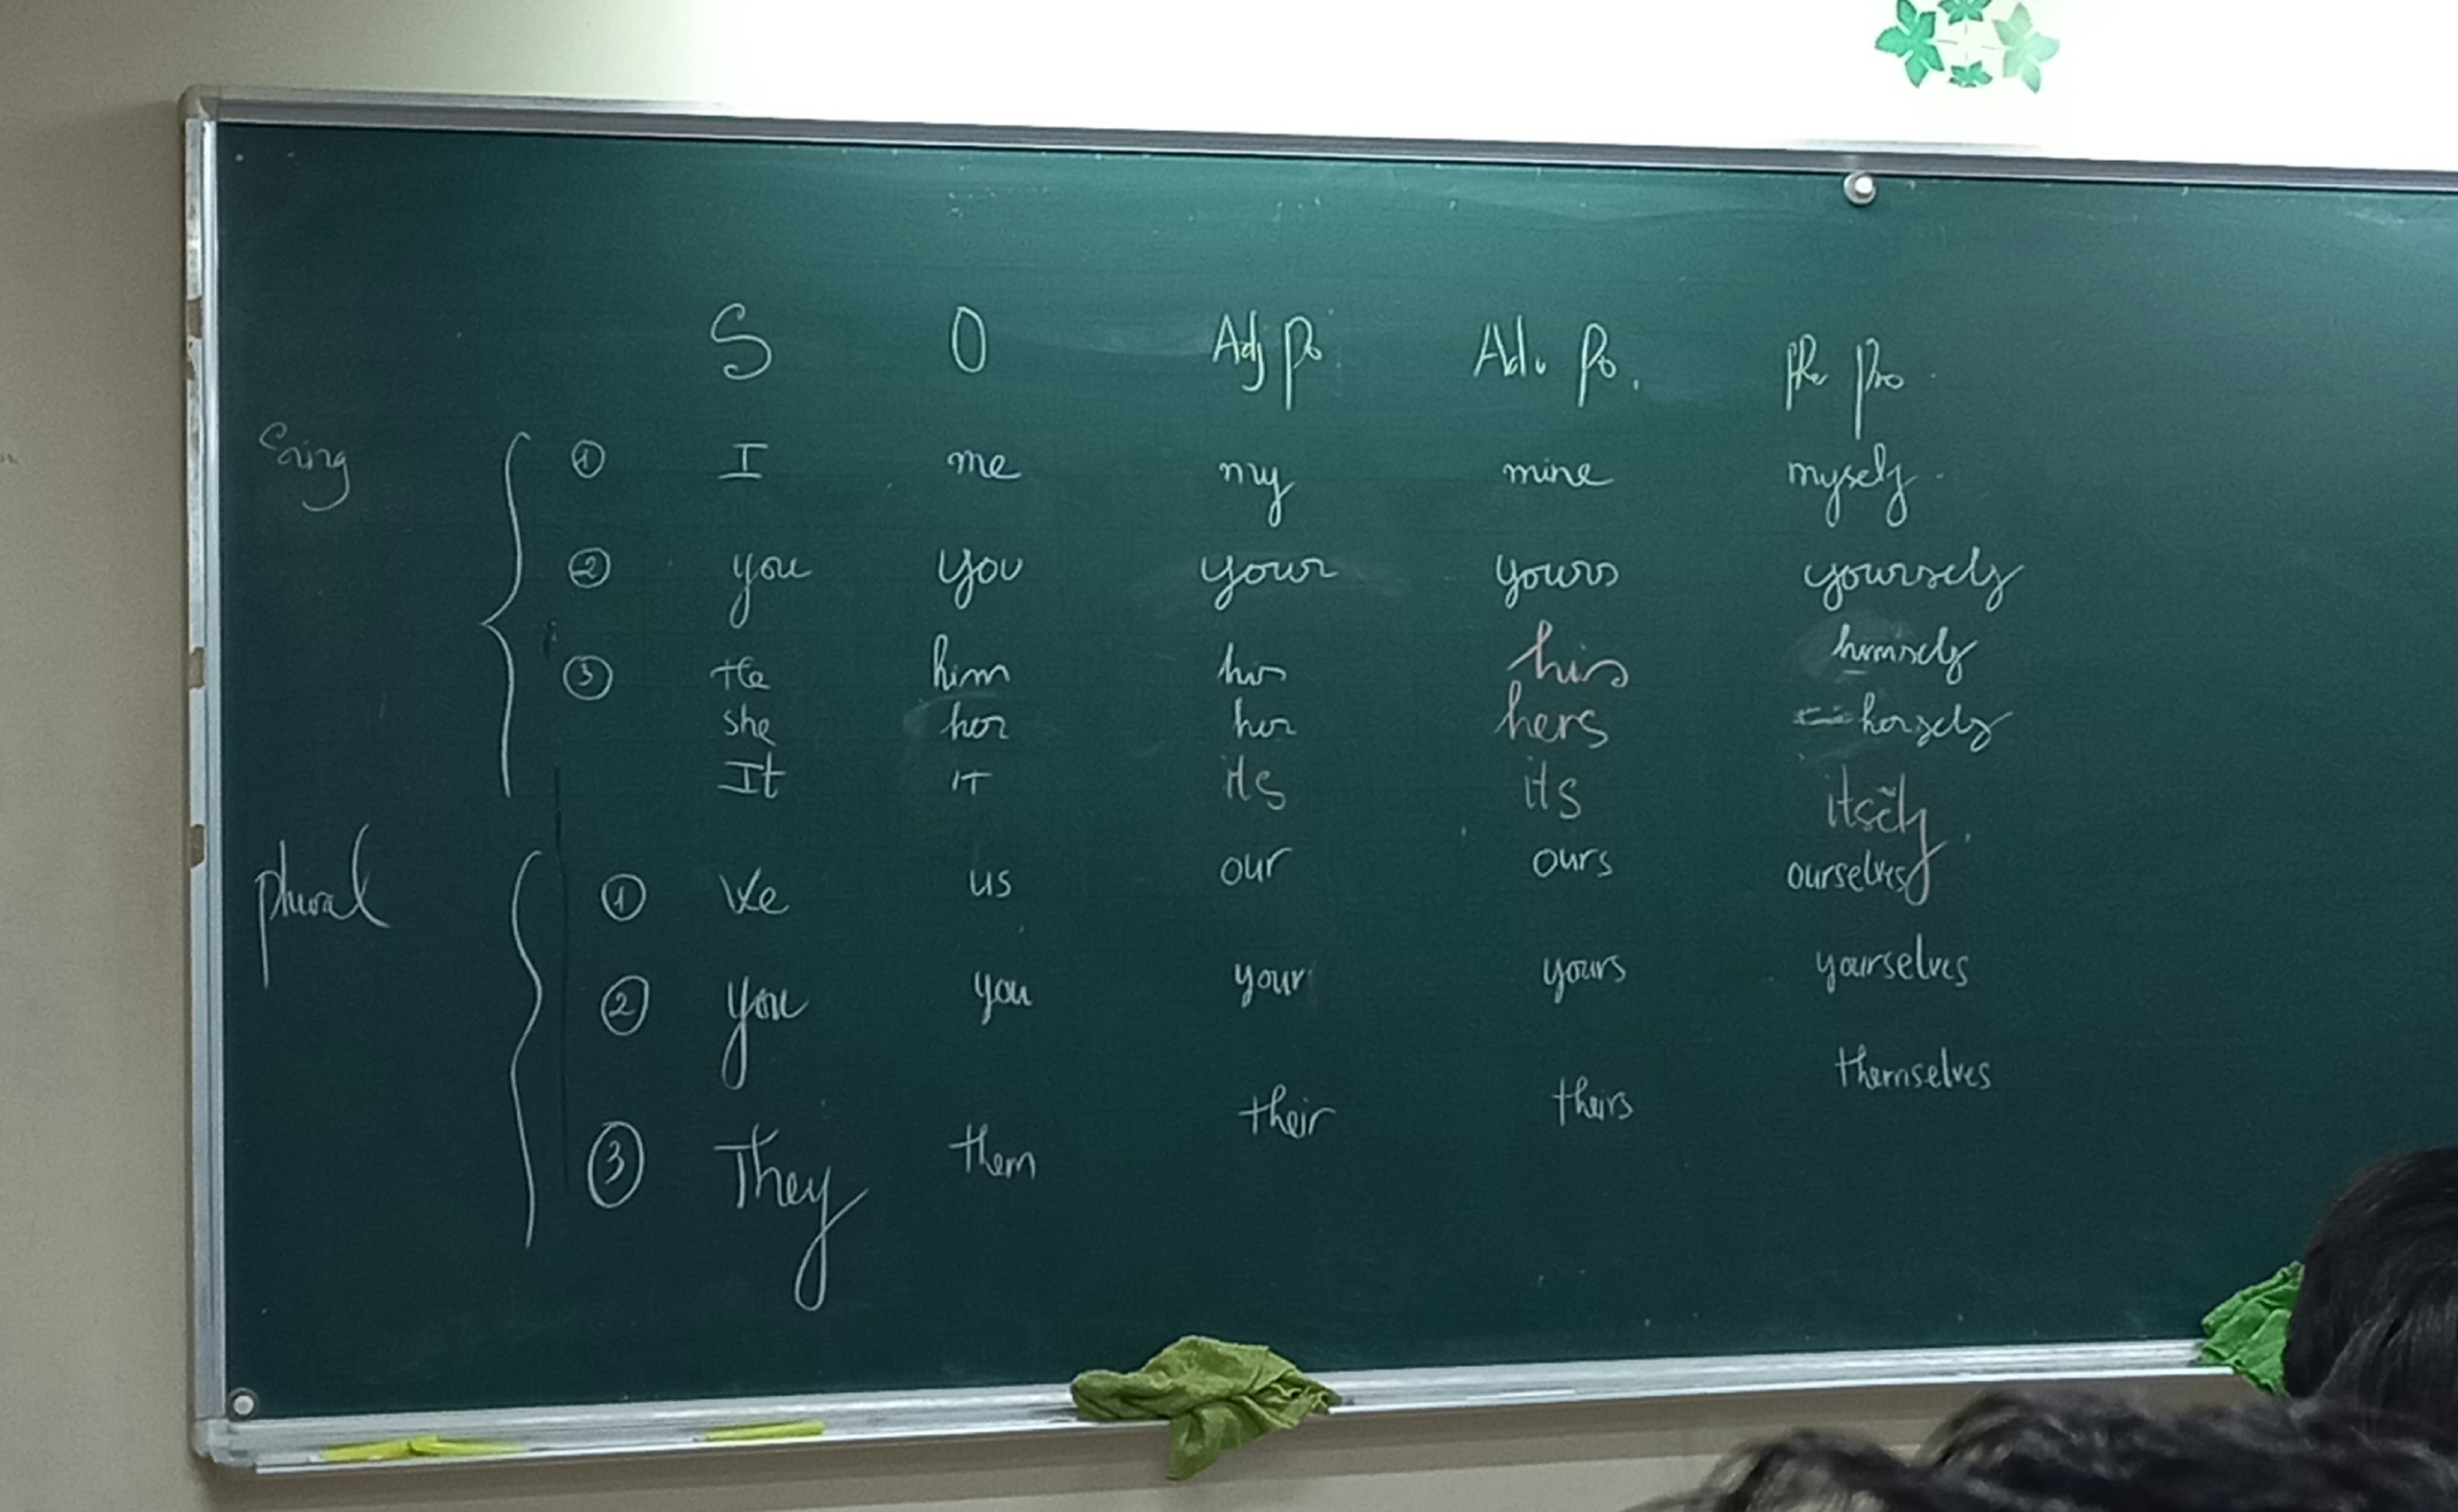 S O Adj po Adv po. Re pro.
Sing ① I me my mine myself.
② you you your yours yourself
③ He him his his himself
she her her hers herself
It IT its its itself.
plural ① We us our ours ourselves
② you you your yours yourselves
③ They them their theirs themselves